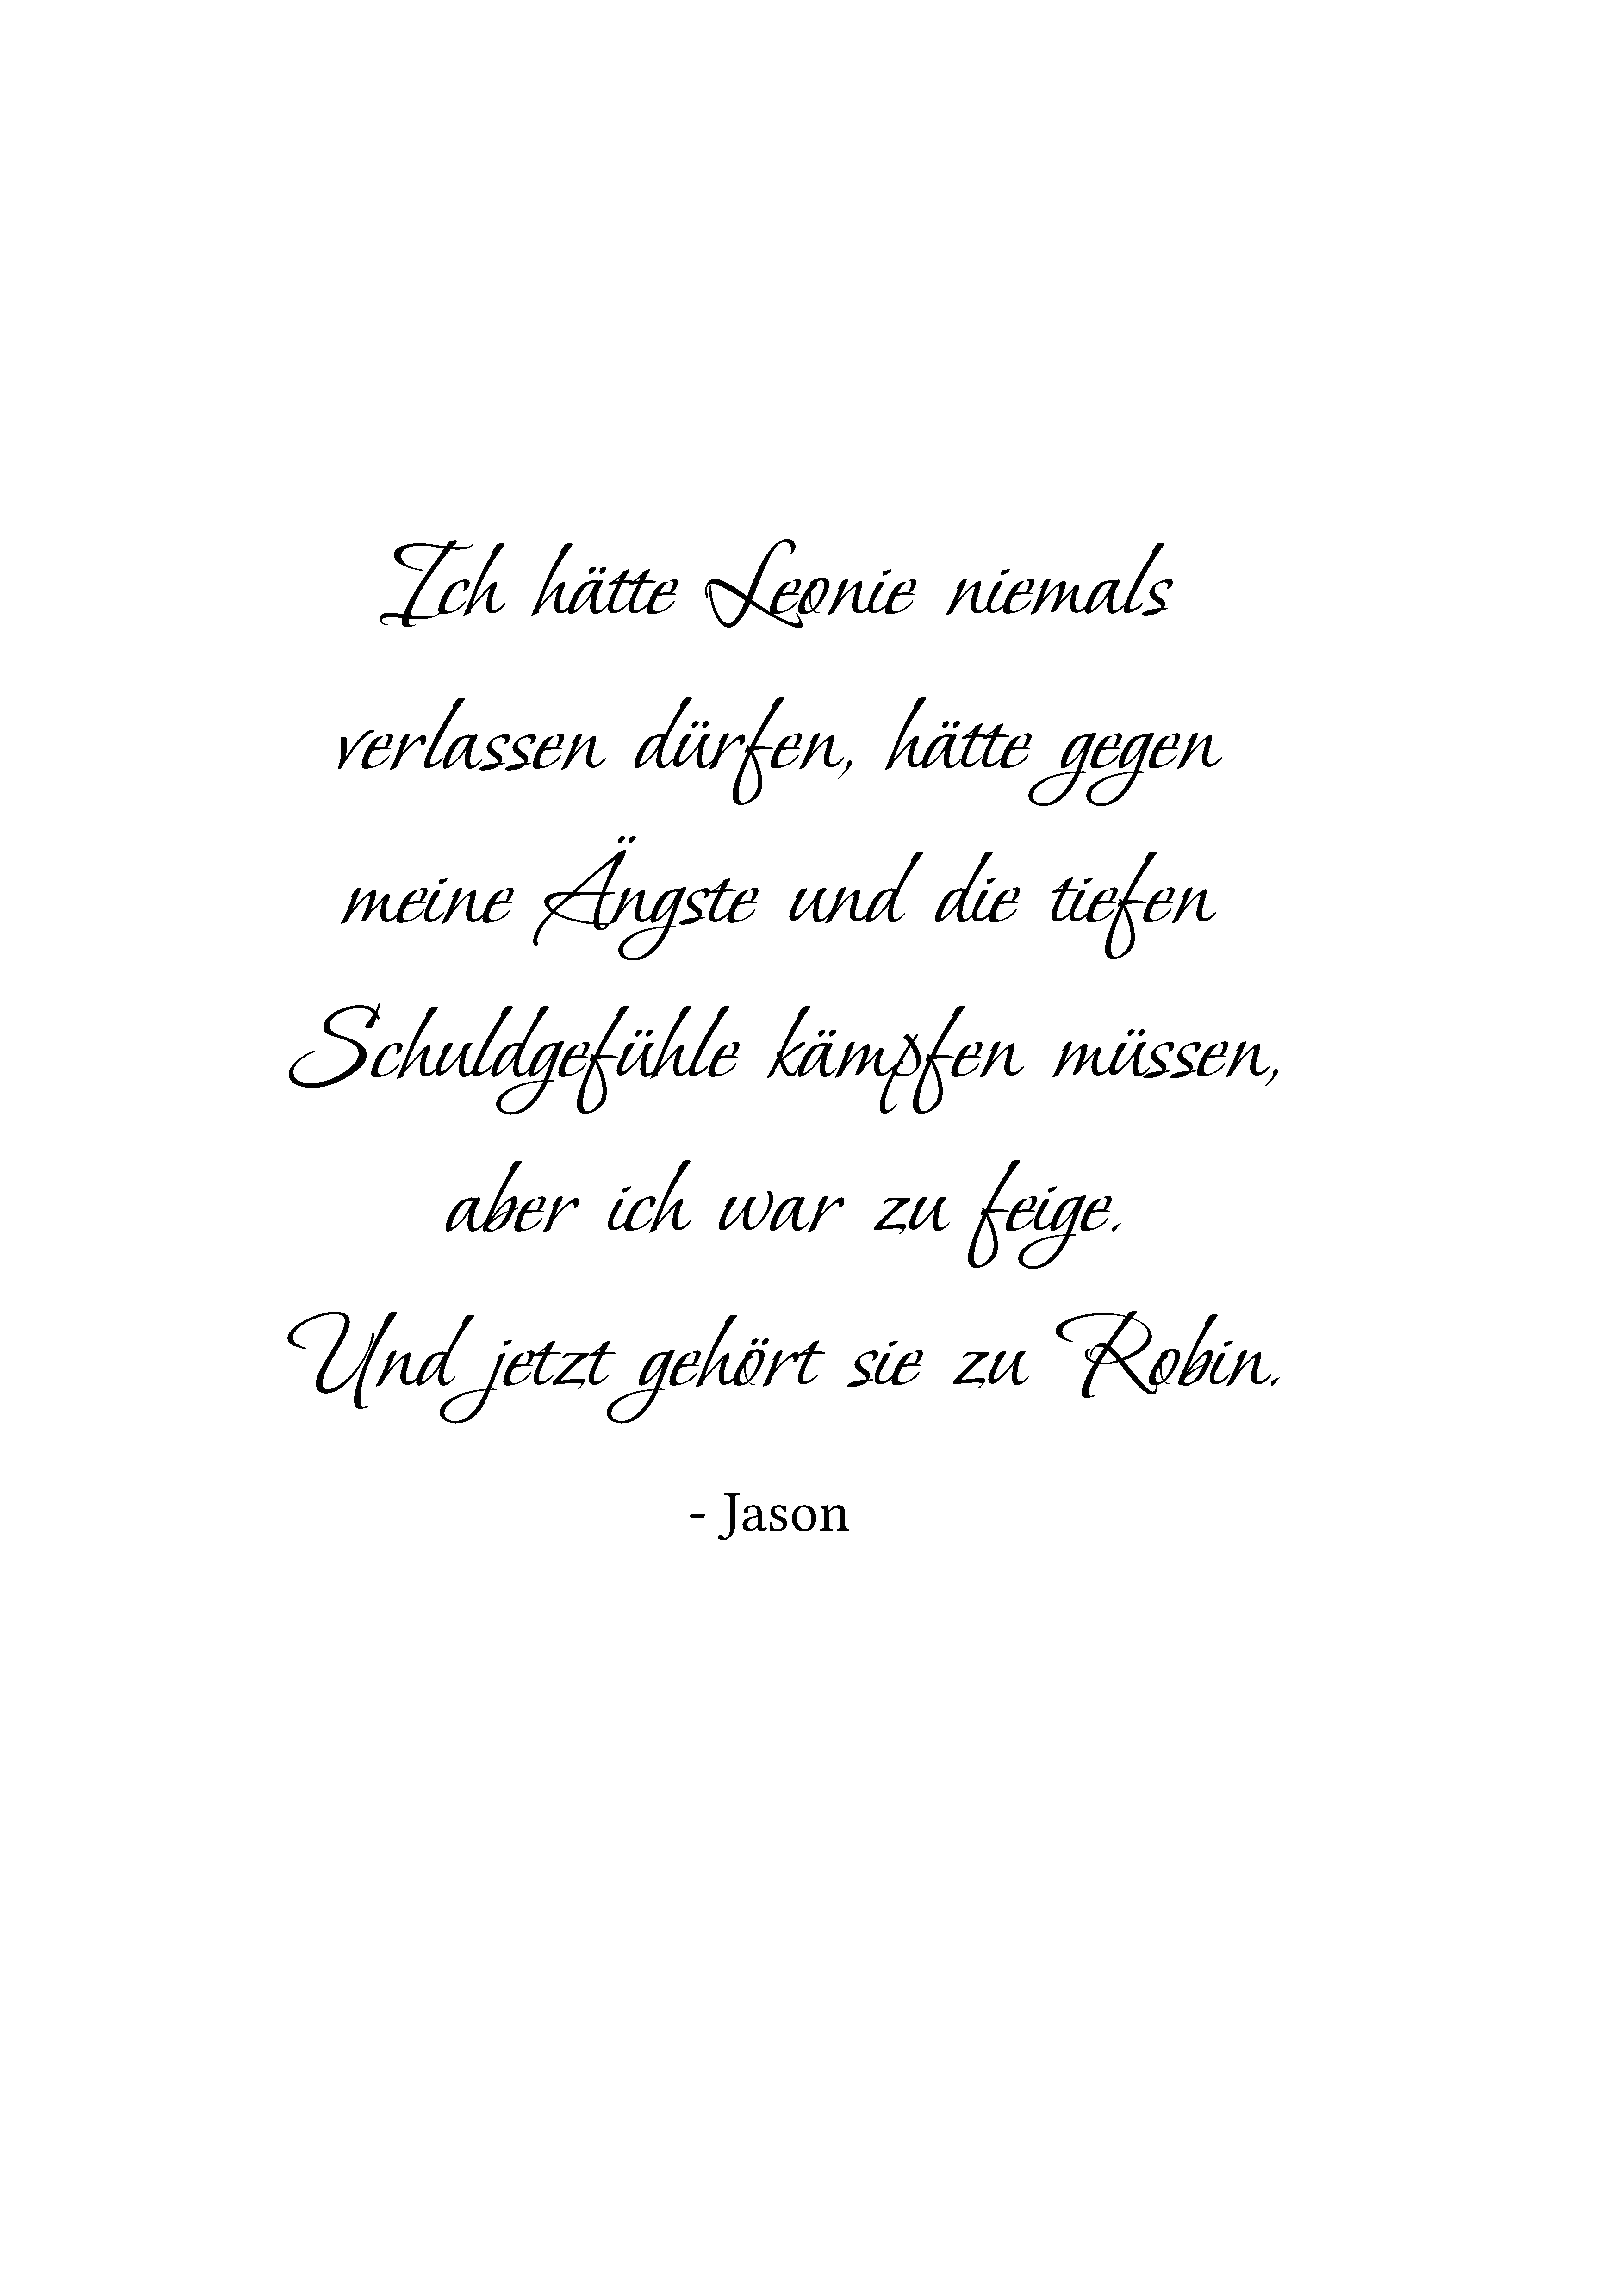 Ich hätte Leonie niemals
verlassen dürfen, hätte gegen
meine Ängste und die tiefen
Schuldgefühle kämpfen müssen,
aber ich war zu feige.
Und jetzt gehört sie zu Robin.
- Jason